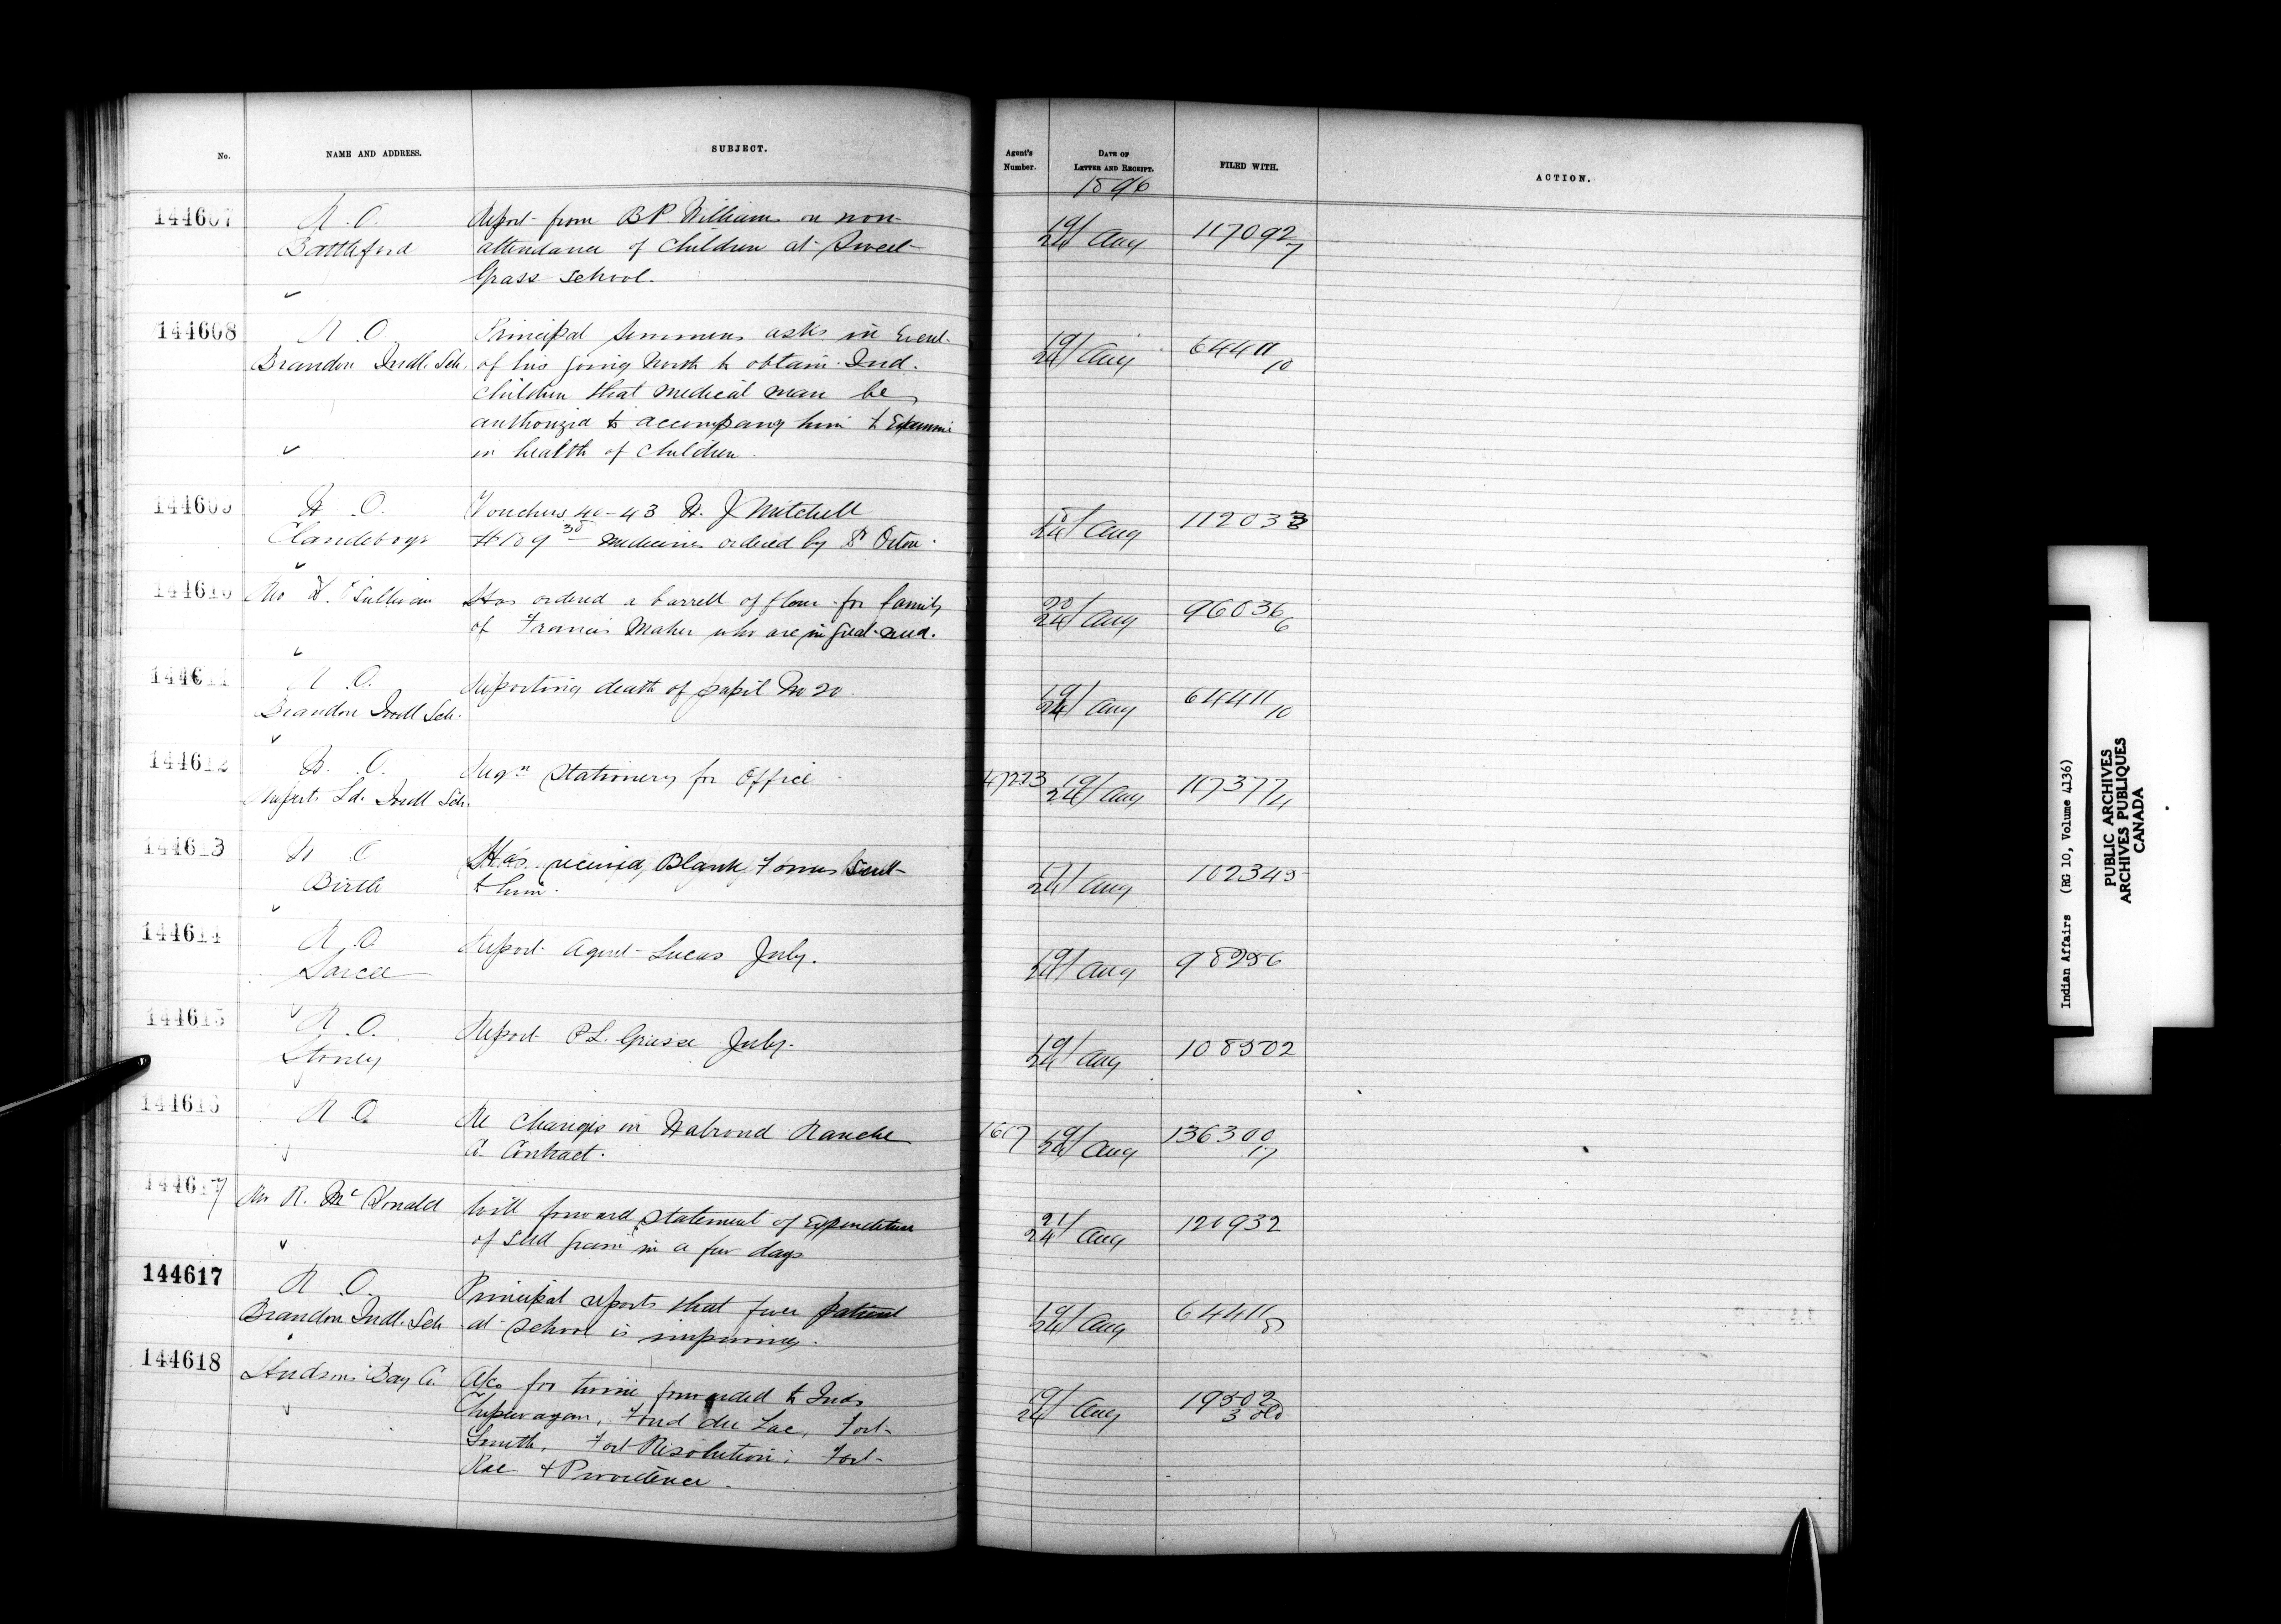 No. NAME AND ADDRESS. SUBJECT. Agent's Number. DATE OF LETTER AND RECEIPT. FILED WITH. ACTION.
1896
144607 R. O. Report from B P. Williams on non- 19/24 Aug 117092/7
Battleford attendance of Children at Sweet
Grass School.
144608 R. O. Principal Semmens asks in Event 19/24 Aug 64411/10
Brandon Indl. Sch. of his going North to obtain Ind.
children that medical man be
authorized to accompany him to Examine
in health of Children.
144609 R. O. Vouchers 40-43 W. J Mitchell 24 Aug 112033
Clandeboye $109 35 medicines ordered by Dr Orton.
144610 O'Sullivan Has ordered a barrell of flour for family 20/24 Aug 96036/6
of Francis Maher who are in great need.
144611 R. O. Reporting death of pupil No 20. 19/24 Aug 64411/10
Brandon Indl Sch.
144612 R. O. Reqn Stationery for Office 47223 19/24 Aug 117377/11
Ruperts Ld. Indl Sch.
144613 R O Has received Blank Forms Sent 17/24 Aug 102345
Birtle to him.
144614 R. O. Report Agent Lucas July. 19/24 Aug 98256
Sarcee
144615 R. O. Report P L. Grasse July. 19/24 Aug 108502
Stoney
144616 R O. Re Changes in Walrond Ranche 1617 19/24 Aug 136300/17
Co. Contract.
144617 Mr R. McDonald Will forward statement of Expenditure 21/24 Aug 121932
of seed grain in a few days
144617 R. O. Principal reports that fever patient 19/24 Aug 64411/8
Brandon Indl. Sch at School is improving.
144618 Hudsons Bay Co. A/cs for twine forwarded to Inds 19/24 Aug 19502
Chipewayan, Fond du Lac, Fort 3 old
Smith, Fort Resolution; Fort
Rae & Providence.
Indian Affairs (RG 10, Volume 4136)
PUBLIC ARCHIVES
ARCHIVES PUBLIQUES
CANADA